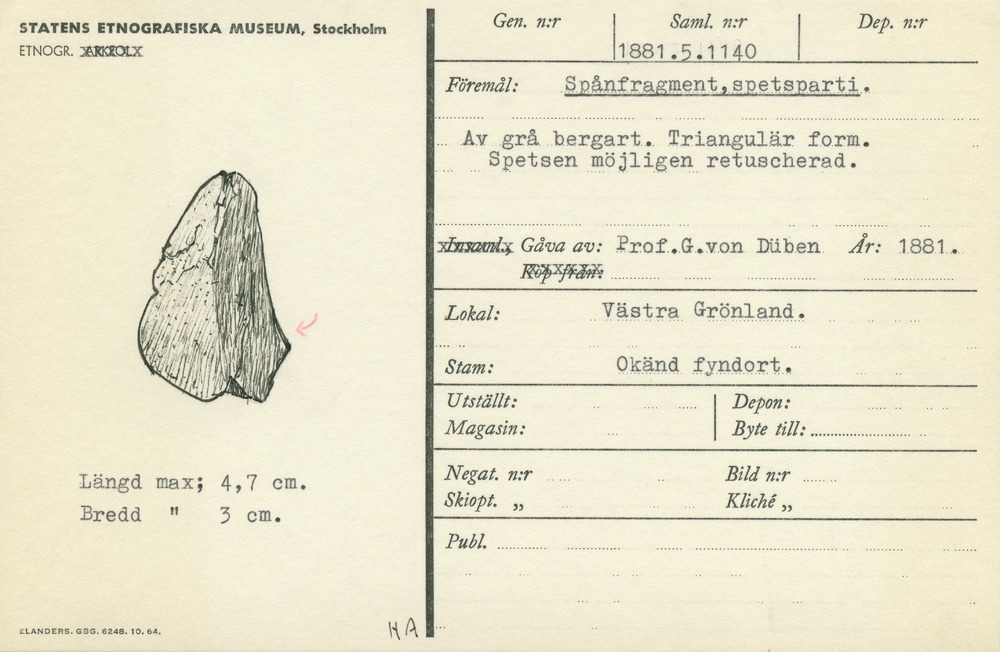 STATENS ETNOGRAFISKA MUSEUM, Stockholm
ETNOGR. ARKEOL
Längd max; 4,7 cm.
Bredd " 3 cm.
ELANDERS. GBG. 6248. 10. 64.
HA
Gen. n:r Saml. n:r Dep. n:r
1881.5.1140
Föremål: Spånfragment,spetsparti.
Av grå bergart. Triangulär form.
Spetsen möjligen retuscherad.
Insaml. Gåva av: Prof.G.von Düben År: 1881.
Köp från:
Lokal: Västra Grönland.
Stam: Okänd fyndort.
Utställt: Depon:
Magasin: Byte till:
Negat. n:r Bild n:r
Skiopt. „ Kliché „
Publ.